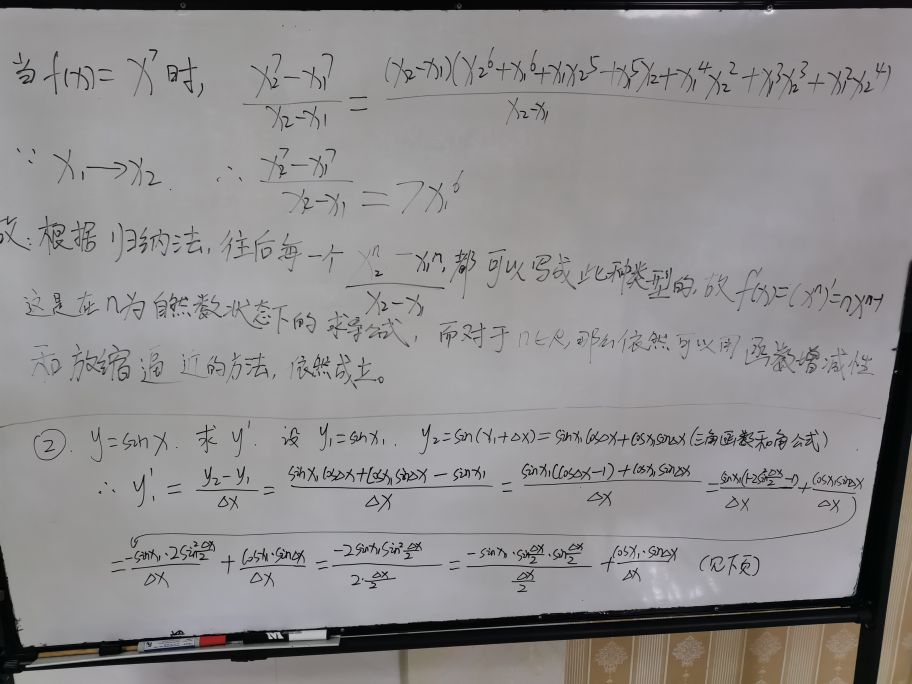 当 f(x) = x⁷ 时, (x₂⁷-x₁⁷)/(x₂-x₁) = (x₂-x₁)(x₂⁶+x₁⁶+x₁x₂⁵+x₁⁵x₂+x₁⁴x₂²+x₁³x₂³+x₁²x₂⁴)/(x₂-x₁)
∵ x₁→x₂. ∴ (x₂⁷-x₁⁷)/(x₂-x₁) = 7x₁⁶
故:根据归纳法,往后每一个 (x₂ⁿ-x₁ⁿ)/(x₂-x₁) 都可以写成此种类型的,故 f'(x)=(xⁿ)'=nxⁿ⁻¹
这是在n为自然数状态下的求导公式,而对于n∈R,那么依然可以用函数增减性
和放缩逼近的方法,依然成立。
② y=sinx. 求y'. 设 y₁=sinx₁. y₂=sin(x₁+Δx)=sinx₁cosΔx+cosx₁sinΔx(三角函数和角公式)
∴ y₁' = (y₂-y₁)/Δx = (sinx₁cosΔx+cosx₁sinΔx-sinx₁)/Δx = (sinx₁(cosΔx-1)+cosx₁sinΔx)/Δx = (sinx₁(1-2sin²(Δx/2)-1))/Δx + (cosx₁sinΔx)/Δx
= (-sinx₁·2sin²(Δx/2))/Δx + (cosx₁·sinΔx)/Δx = (-2sinx₁sin²(Δx/2))/(2·(Δx/2)) = (-sinx₁·sin(Δx/2)·sin(Δx/2))/(Δx/2) + (cosx₁·sinΔx)/Δx (见下页)